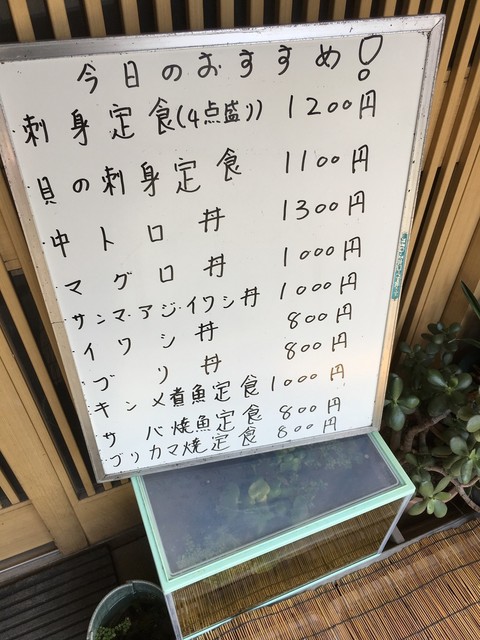 今日のおすすめ!
刺身定食(4点盛り) 1200円
貝の刺身定食 1100円
中トロ丼 1300円
マグロ丼 1000円
サンマ・アジ・イワシ丼 1000円
イワシ丼 800円
ブリ丼 800円
キンメ煮魚定食 1000円
サバ焼魚定食 800円
ブリカマ焼定食 800円